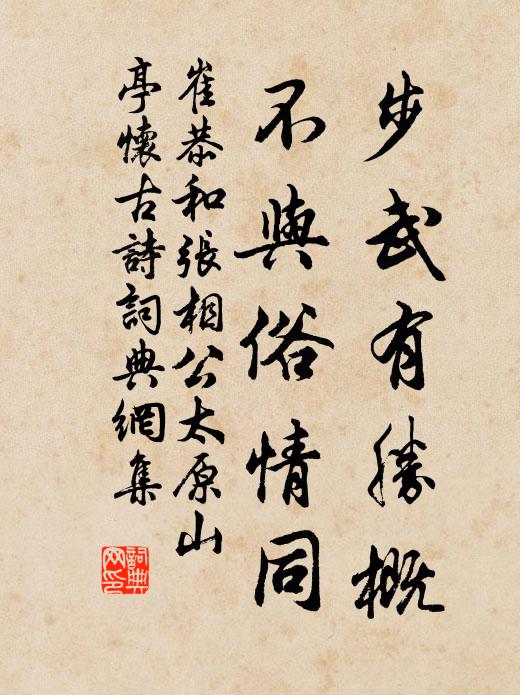 步武有勝概
不與俗情同
崔恭和張相公太原山
亭懷古詩詞典網集
詞典网印